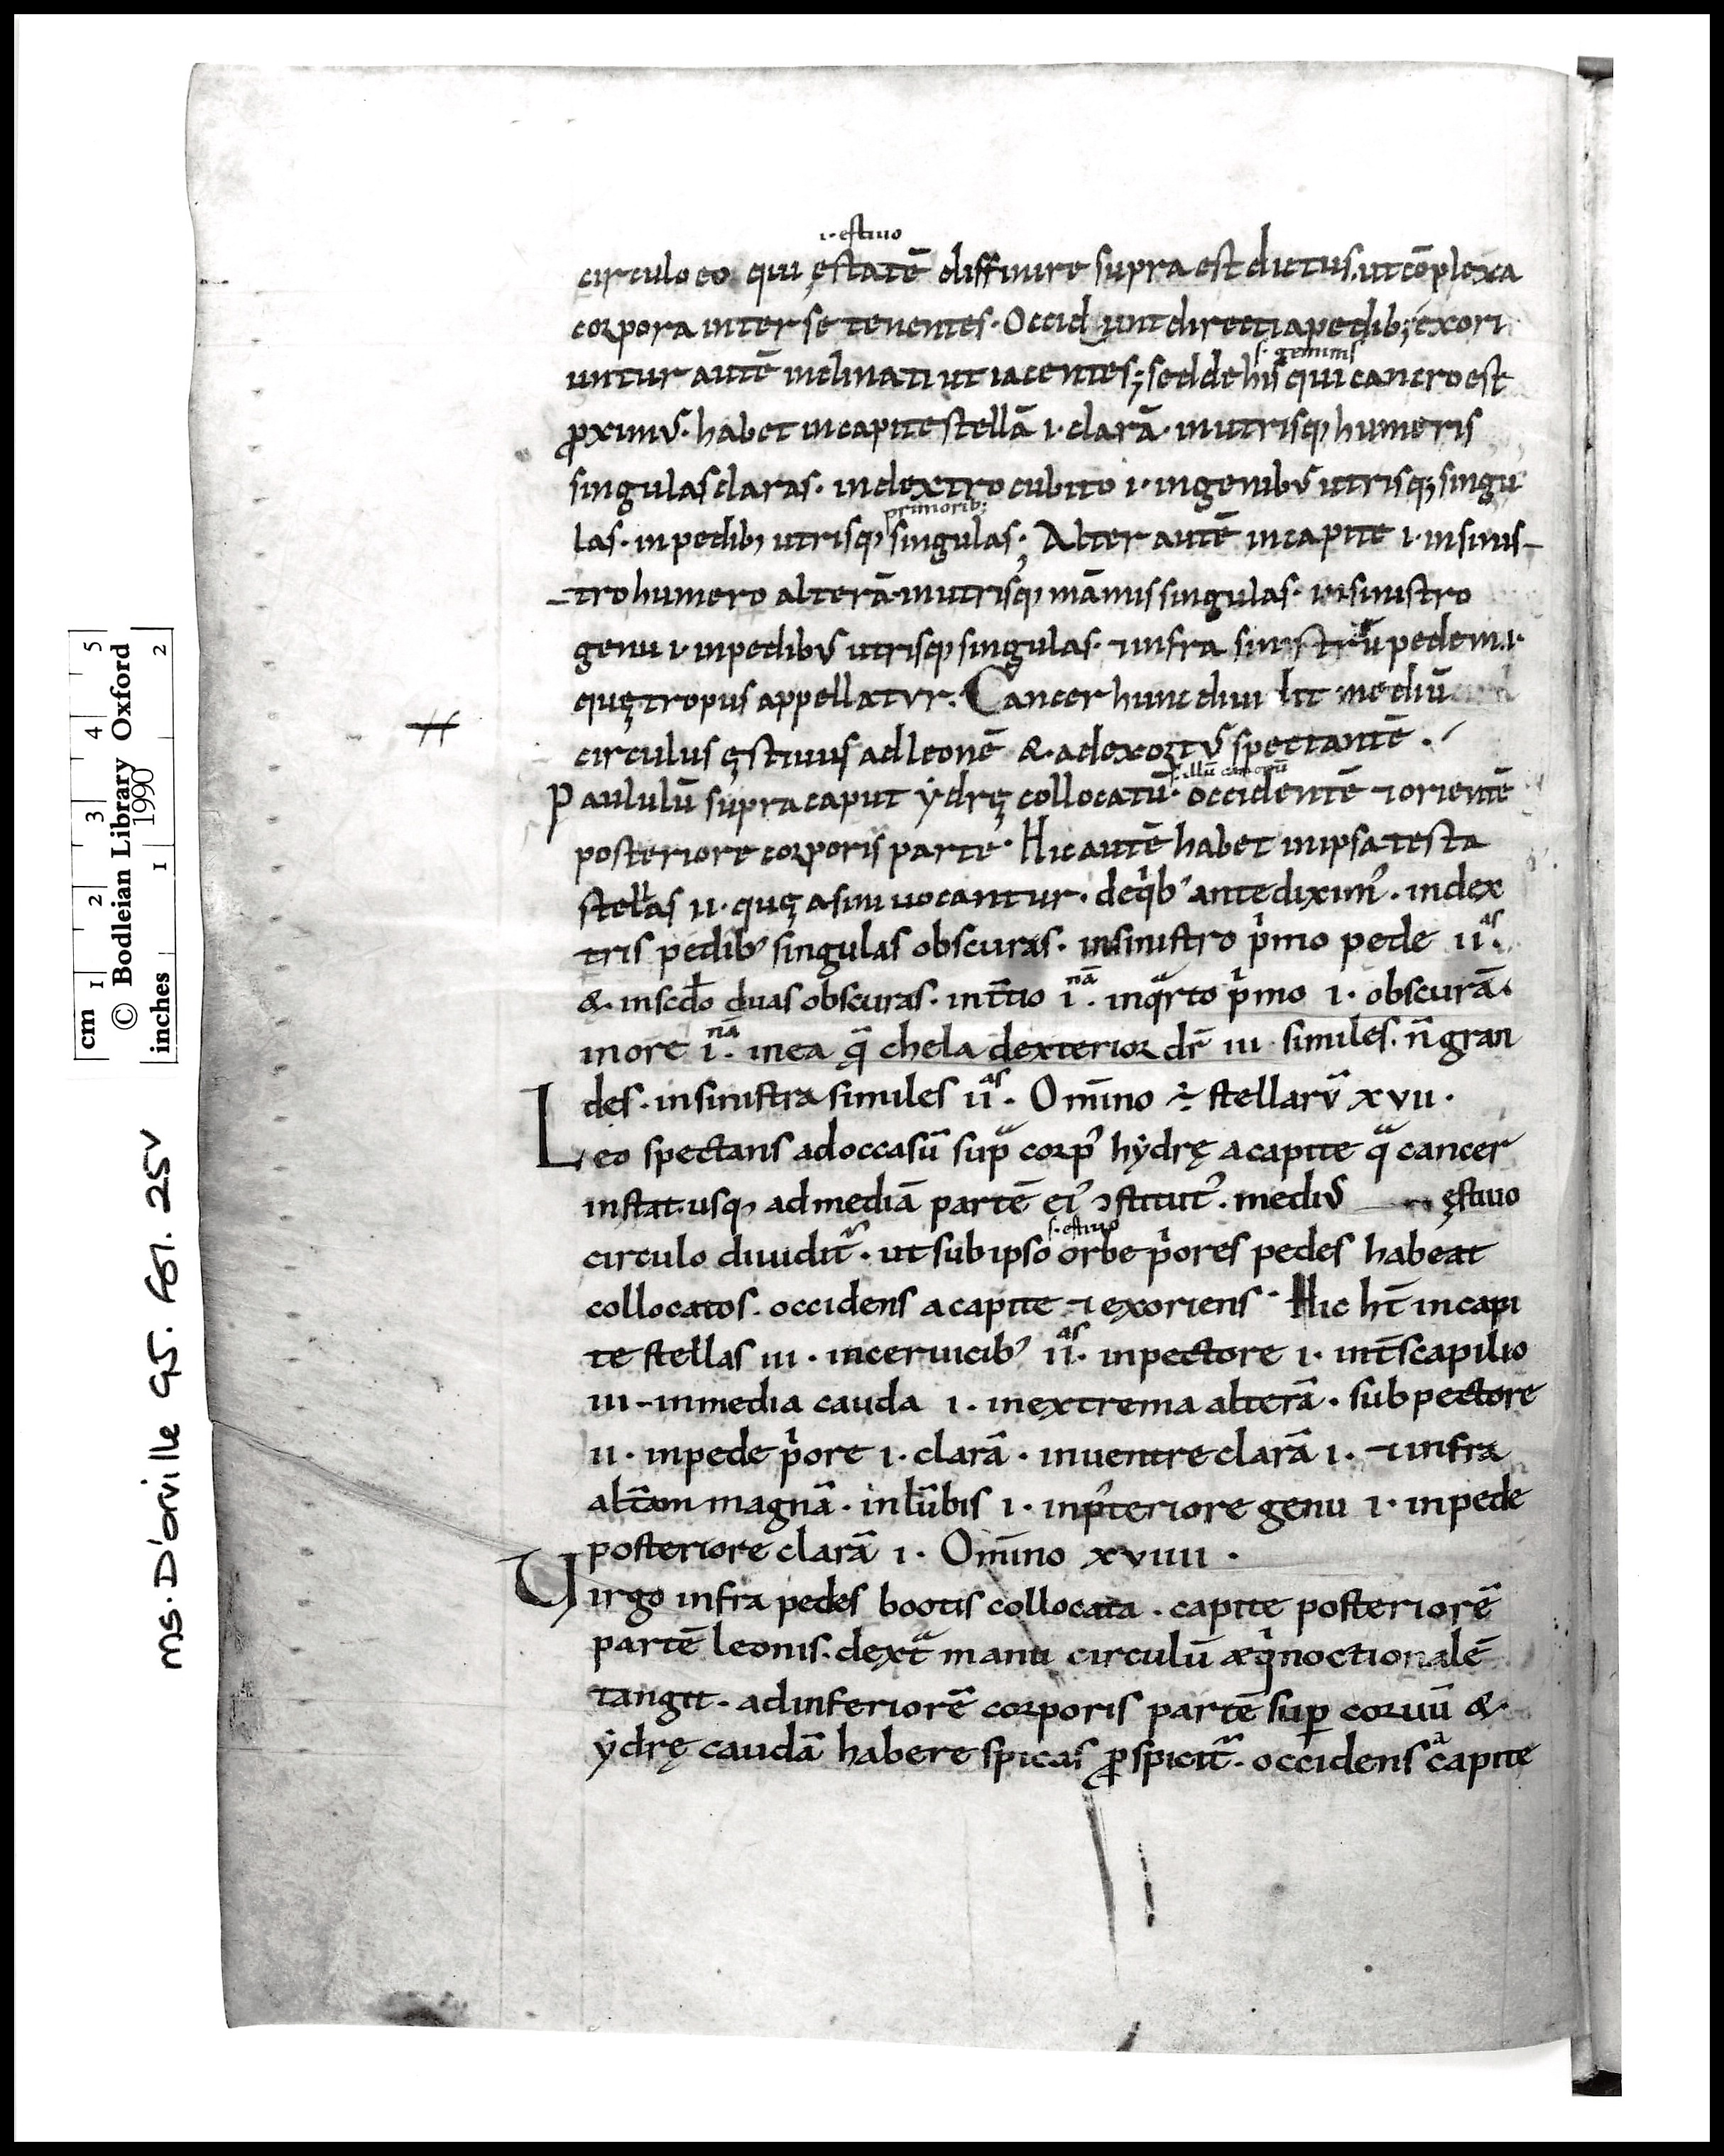 ı·estiuo
circulo eo qui ęstatē diffinire supra est dictus. ut cōplexa
corpora inter se tenentes · Occidunt directi a pedib; exori
untur autē inclinati ut iacentes; sed de his qui cancro est
s· geminis
ꝓximus · habet in capite stellā i · clarā · in utrisq; humeris
singulas claras · in dextro cubito i · in genibus utrisq; singu
primorib;
las · in pedib; utrisq; singulas; Alter autē in capite i · in sinis-
-tro humero alterā · in utrisq; mānus singulas · in sinistro
genu i · in pedibus utrisq; singulas · ⁊ infra sinistrū pedem · i ·
quę tropus appellatur · Cancer hunc diui dit mediū
circulus ęstiuus ad leonē & ad exortū spectantē ·
s· illū cancrū
Paululū supra caput ẏdrę collocatū · occidentē ⁊ orientē
posteriore corporis parte · Hic autē habet in ipsa testa
stellas ii · quę asini uocantur · de qͥb' ante diximꝰ · in dex
tris pedib' singulas obscuras · in sinistro pͥmo pede iiᵃˢ ·
& in scdo duas obscuras · in t̄tio iⁿᵃ̄ · in qᵃrto pͥmo i · obscurā ·
in ore iⁿᵃ̄ · in ea q̄ chela dexterior dr̄ iii · similes · n̄ gran
des · in sinistra similes iiᵃˢ · Om̄ino ÷ stellarū xvii ·
Leo spectans ad occasū supᵃ corpꝰ hẏdrę a capite qᵃ cancer
instat · usq; ad mediā partē eiꝰ ↄstituit᷑ · mediꝰ ęstiuo
s· estiuo
circulo diuidit᷑ · ut sub ipso orbe pͥores pedes habeat
collocatos · occidens a capite ⁊ exoriens · Hic ht̄ in capi
te stellas iii · in ceruicib' iiᵃˢ · in pectore i · int̄scapilio
iii - in media cauda i · in extrema alterā · sub pectore
ii · in pede pͥore i · clarā · in uentre clarā i · ⁊ infra
alt̄am magnā · in lūbis i · in pꝰteriore genu i · in pede
posteriore clarā i · Om̄ino xviiii ·
Virgo infra pedes bootis collocata · capite posteriorē
partē leonis · dextᵃ manu circulū æqͥnoctionalē
tangit · ad inferiorē corporis partē suꝑ coruū &
ẏdrę caudā habere spicas ꝓspicit᷑ · occidens a capite
cm 1 2 3 4 5
© Bodleian Library Oxford
1990
inches 1 2
MS. D'orville 95. fol. 25v